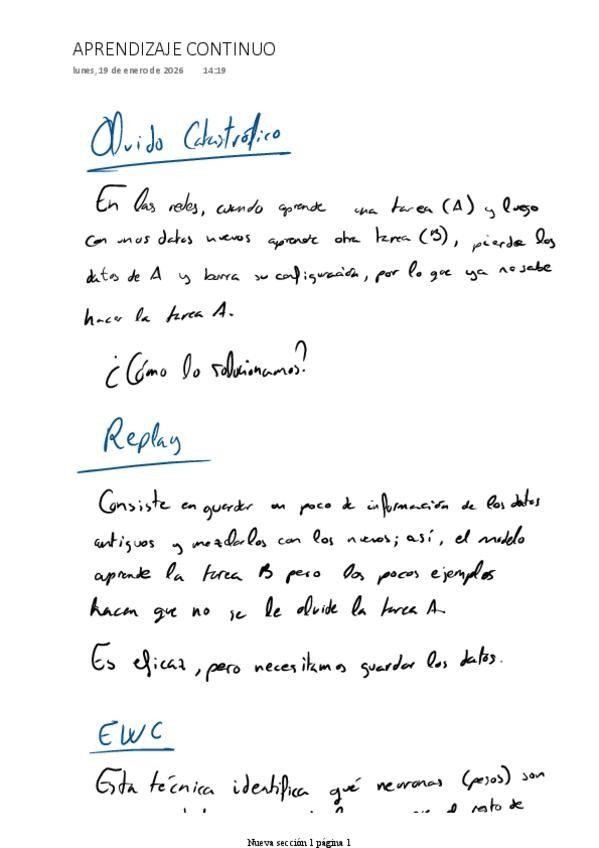 APRENDIZAJE CONTINUO
lunes, 19 de enero de 2026 14:19
Olvido Catastrófico
En las redes, cuando aprende una tarea (A) y luego
con unos datos nuevos aprende otra tarea (B), pierde los
datos de A y borra su configuración, por lo que ya no sabe
hacer la tarea A.
¿Cómo lo solucionamos?
Replay
Consiste en guardar un poco de información de los datos
antiguos y mezclarlos con los nuevos; así, el modelo
aprende la tarea B pero los pocos ejemplos
hacen que no se le olvide la tarea A.
Es eficaz, pero necesitamos guardar los datos.
EWC
Esta técnica identifica qué neuronas (pesos) son
el resto de
Nueva sección 1 página 1